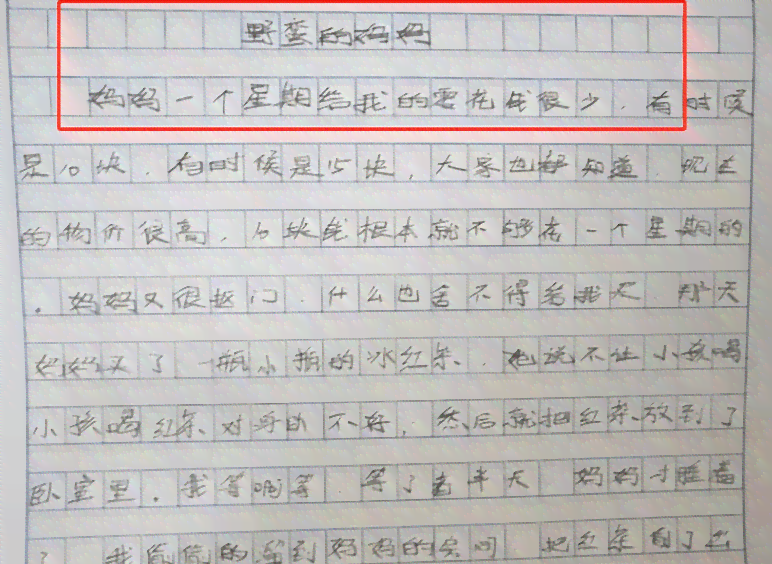 野蛮的妈妈
妈妈一个星期给我的零花钱很少.有时候
是10块.有时候是15块,大家也都知道.现在
的物价很高,10块钱根本就不够花一个星期的
.妈妈又很抠门.什么也舍不得给我买 那天
妈妈买了一瓶小瓶的冰红茶、.她说不让小孩喝
小孩喝红茶、对身体不好,然后就把红茶、放到了
卧室里.我等啊等.等了老半天 妈妈才睡着
了 我偷偷的 到妈妈的房间 把红茶 了出